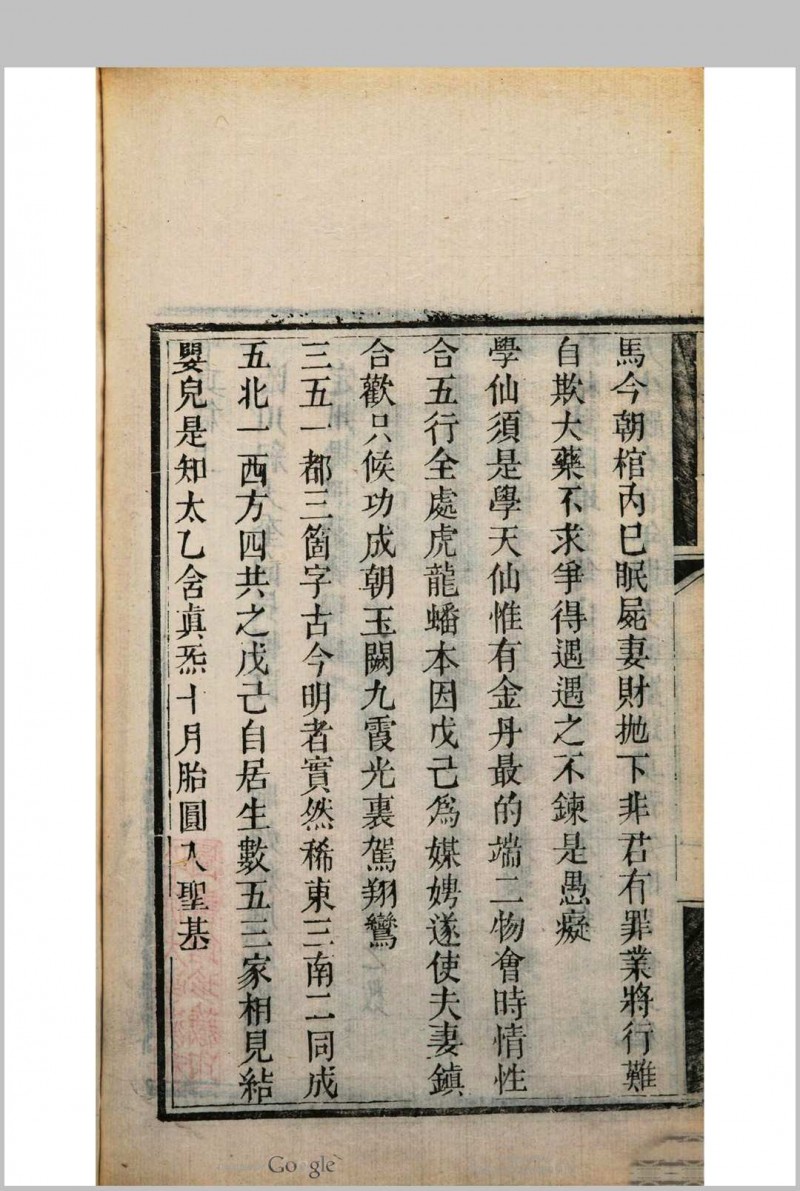 馬今朝棺內已眠屍妻財拋下非君有罪業將行難
自欺大藥不求爭得遇遇之不鍊是愚癡
學仙須是學天仙惟有金丹最的端二物會時情性
合五行全處虎龍蟠本因戊己爲媒娉遂使夫妻鎮
合歡只候功成朝玉闕九霞光裏駕翔鸞
三五一都三箇字古今明者實然稀東三南二同成
五北一西方四共之戊己自居生數五三家相見結
嬰兒是知太乙含真炁十月胎圓入聖基
Google